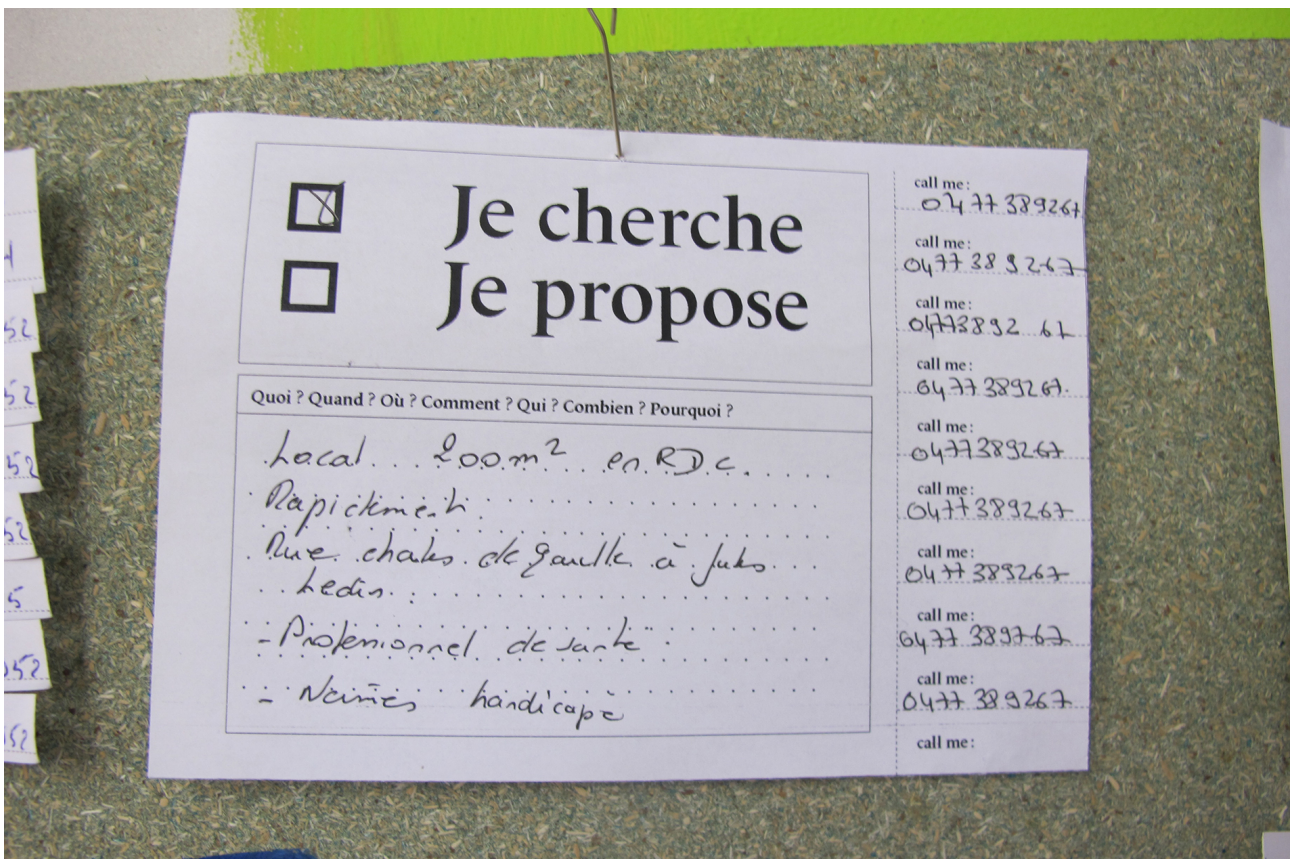 Je cherche
Je propose
Quoi ? Quand ? Où ? Comment ? Qui ? Combien ? Pourquoi ?
Local 200m² en RDC.
Rapidement.
Rue chales de gaulle à
- Professionnel de santé
- handicapé
call me :
0477389267
call me :
0477389267
call me :
0477389267
call me :
0477389267.
call me :
0477389267
call me :
0477389267
call me :
0477389267
call me :
0477389767
call me :
0477389267
call me :
52
52
52
52
5
052
52